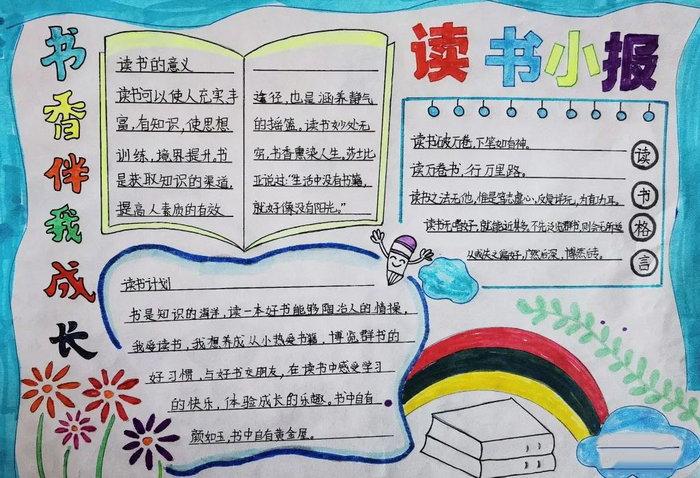 书香伴我成长
读书小报
读书的意义
读书可以使人充实丰
富,有知识,使思想
训练,境界提升,书
是获取知识的渠道,
提高人素质的有效
途径,也是涵养静气
的摇篮,读书妙处无
穷,书香熏染人生,莎士比
亚说过:“生活中没有书籍,
就好像没有阳光。”
读书破万卷,下笔如有神。
读万卷书,行万里路。
读书之法无他,惟是笃志虚心,反复详玩,为有功耳。
读书无嗜好,就能尽其多。不先泛览群书,则会无所适
从或失之偏好,广然后深,博然后专。
读书格言
读书计划
书是知识的海洋,读一本好书能够陶冶人的情操,
我爱读书,我想养成从小热爱书籍,博览群书的
好习惯,与好书交朋友,在读书中感受学习
的快乐,体验成长的乐趣。书中自有
颜如玉,书中自有黄金屋。